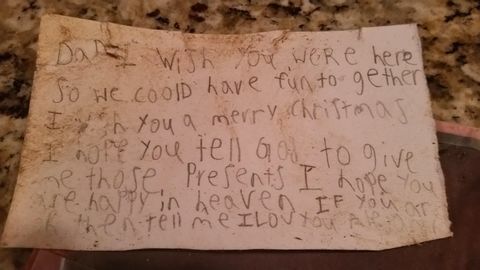 Dad I wish you were here
so we coold have fun to gether
I wish you a merry christmas
I hope you tell God to give
me those Presents I hope you
are happy in heaven IF you ar
then tell me I LOV you